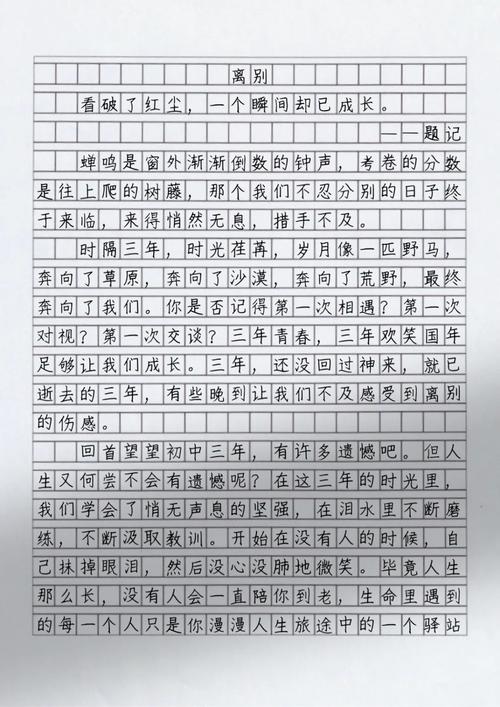 离别
看破了红尘，一个瞬间却已成长。
——题记
蝉鸣是窗外渐渐倒数的钟声，考卷的分数
是往上爬的树藤，那个我们不忍分别的日子终
于来临，来得悄然无息，措手不及。
时隔三年，时光荏苒，岁月像一匹野马，
奔向了草原，奔向了沙漠，奔向了荒野，最终
奔向了我们。你是否记得第一次相遇？第一次
对视？第一次交谈？三年青春，三年欢笑国年
足够让我们成长。三年，还没回过神来，就已
逝去的三年，有些晚到让我们不及感受到离别
的伤感。
回首望望初中三年，有许多遗憾吧。但人
生又何尝不会有遗憾呢？在这三年的时光里，
我们学会了悄无声息的坚强，在泪水里不断磨
练，不断汲取教训。开始在没有人的时候，自
己抹掉眼泪，然后没心没肺地微笑。毕竟人生
那么长，没有人会一直陪你到老，生命里遇到
的每一个人只是你漫漫人生旅途中的一个驿站